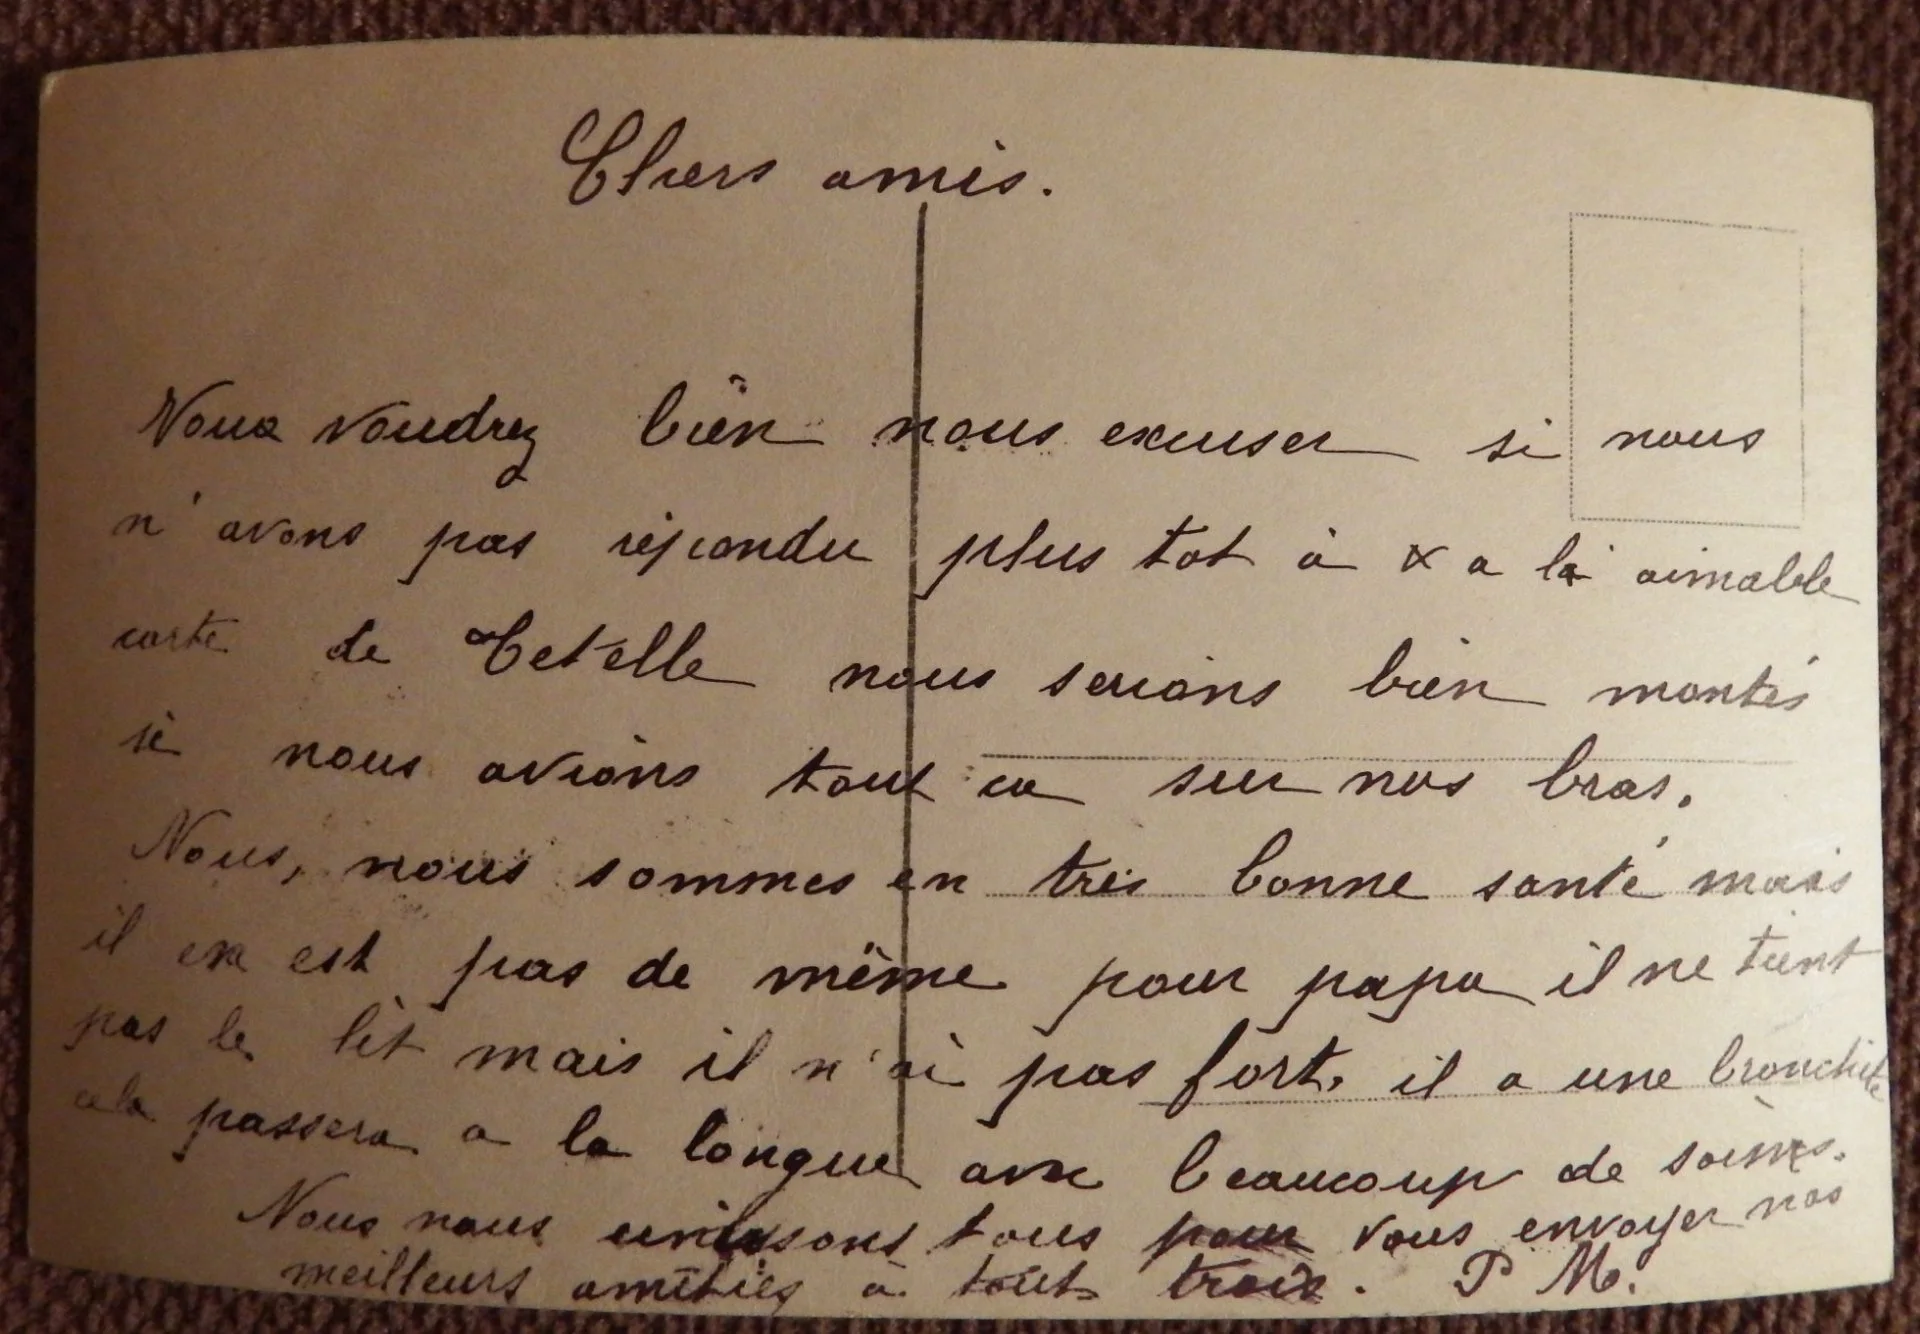 Chers amis.
Vous voudrez bien nous excuser si nous
n'avons pas répondu plus tot à x a la aimable
carte de Tetelle nous serions bien montés
si nous avions tout ca sur nos bras.
Nous, nous sommes en très bonne santé mais
il en est pas de même pour papa il ne tient
pas le lit mais il n'ai pas fort. il a une bronchite
cela passera a la longue avec beaucoup de soins.
Nous nous unissons tous pour vous envoyer nos
meilleurs amitiés à tout trois. P M.